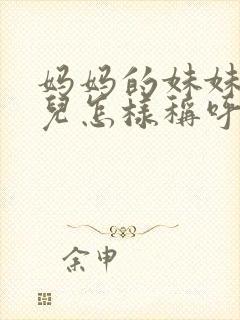 妈妈的妹妹
兒怎樣稱呼
余申